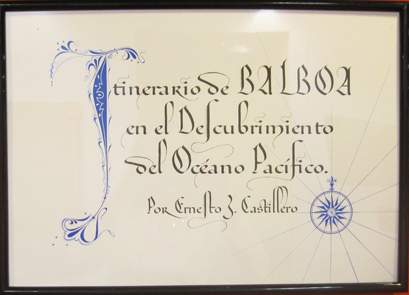 Itinerario de BALBOA
en el Descubrimiento
del Océano Pacífico.
Por Ernesto Z. Castillero